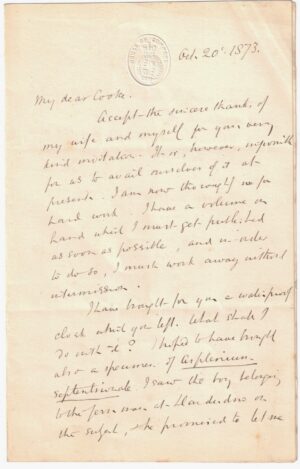 Oct. 20th 1873.
My dear Cooke.
Accept the sincere thanks of
my wife and myself for your very
kind invitation. It is, however, impossible
for us to avail ourselves of it at
present. I am now thoroughly in for
hard work. I have a volume on
hand which I must get published
as soon as possible, and in order
to do so, I must work away without
intermission.
I have brought for you a waterproof
cloak which you left. What shall I
do with it? I hoped to have brought
also a specimen of Asplenium
Septentrionale I saw the boy belonging
to the fern man at Llandudno on
the subject, & he promised to let me